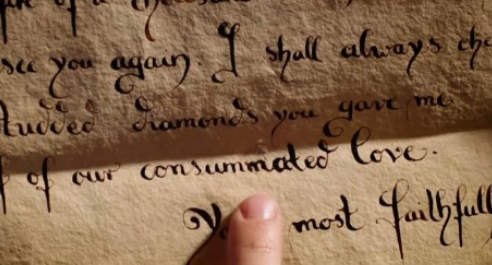 of a
see you again. I shall always che
tudded diamonds you gave me
of our consummated love.
most faithfull